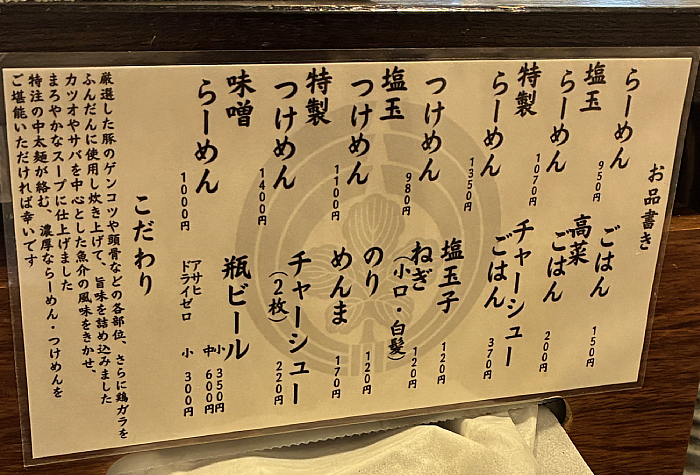 お品書き
らーめん 950円
塩玉らーめん 1070円
特製らーめん 1350円
つけめん 980円
塩玉つけめん 1100円
特製つけめん 1400円
味噌らーめん 1000円
ごはん 150円
高菜ごはん 200円
チャーシューごはん 370円
塩玉子 120円
ねぎ(小口・白髪) 120円
のり 120円
めんま 170円
チャーシュー(2枚) 220円
瓶ビール 小 350円
中 600円
アサヒドライゼロ 小 300円
こだわり
厳選した豚のゲンコツや頭骨などの各部位、さらに鶏ガラを
ふんだんに使用し炊き上げて、旨味を詰め込みました
カツオやサバを中心とした魚介の風味をきかせ、
まろやかなスープに仕上げました
特注の中太麺が絡む、濃厚ならーめん・つけめんを
ご堪能いただければ幸いです